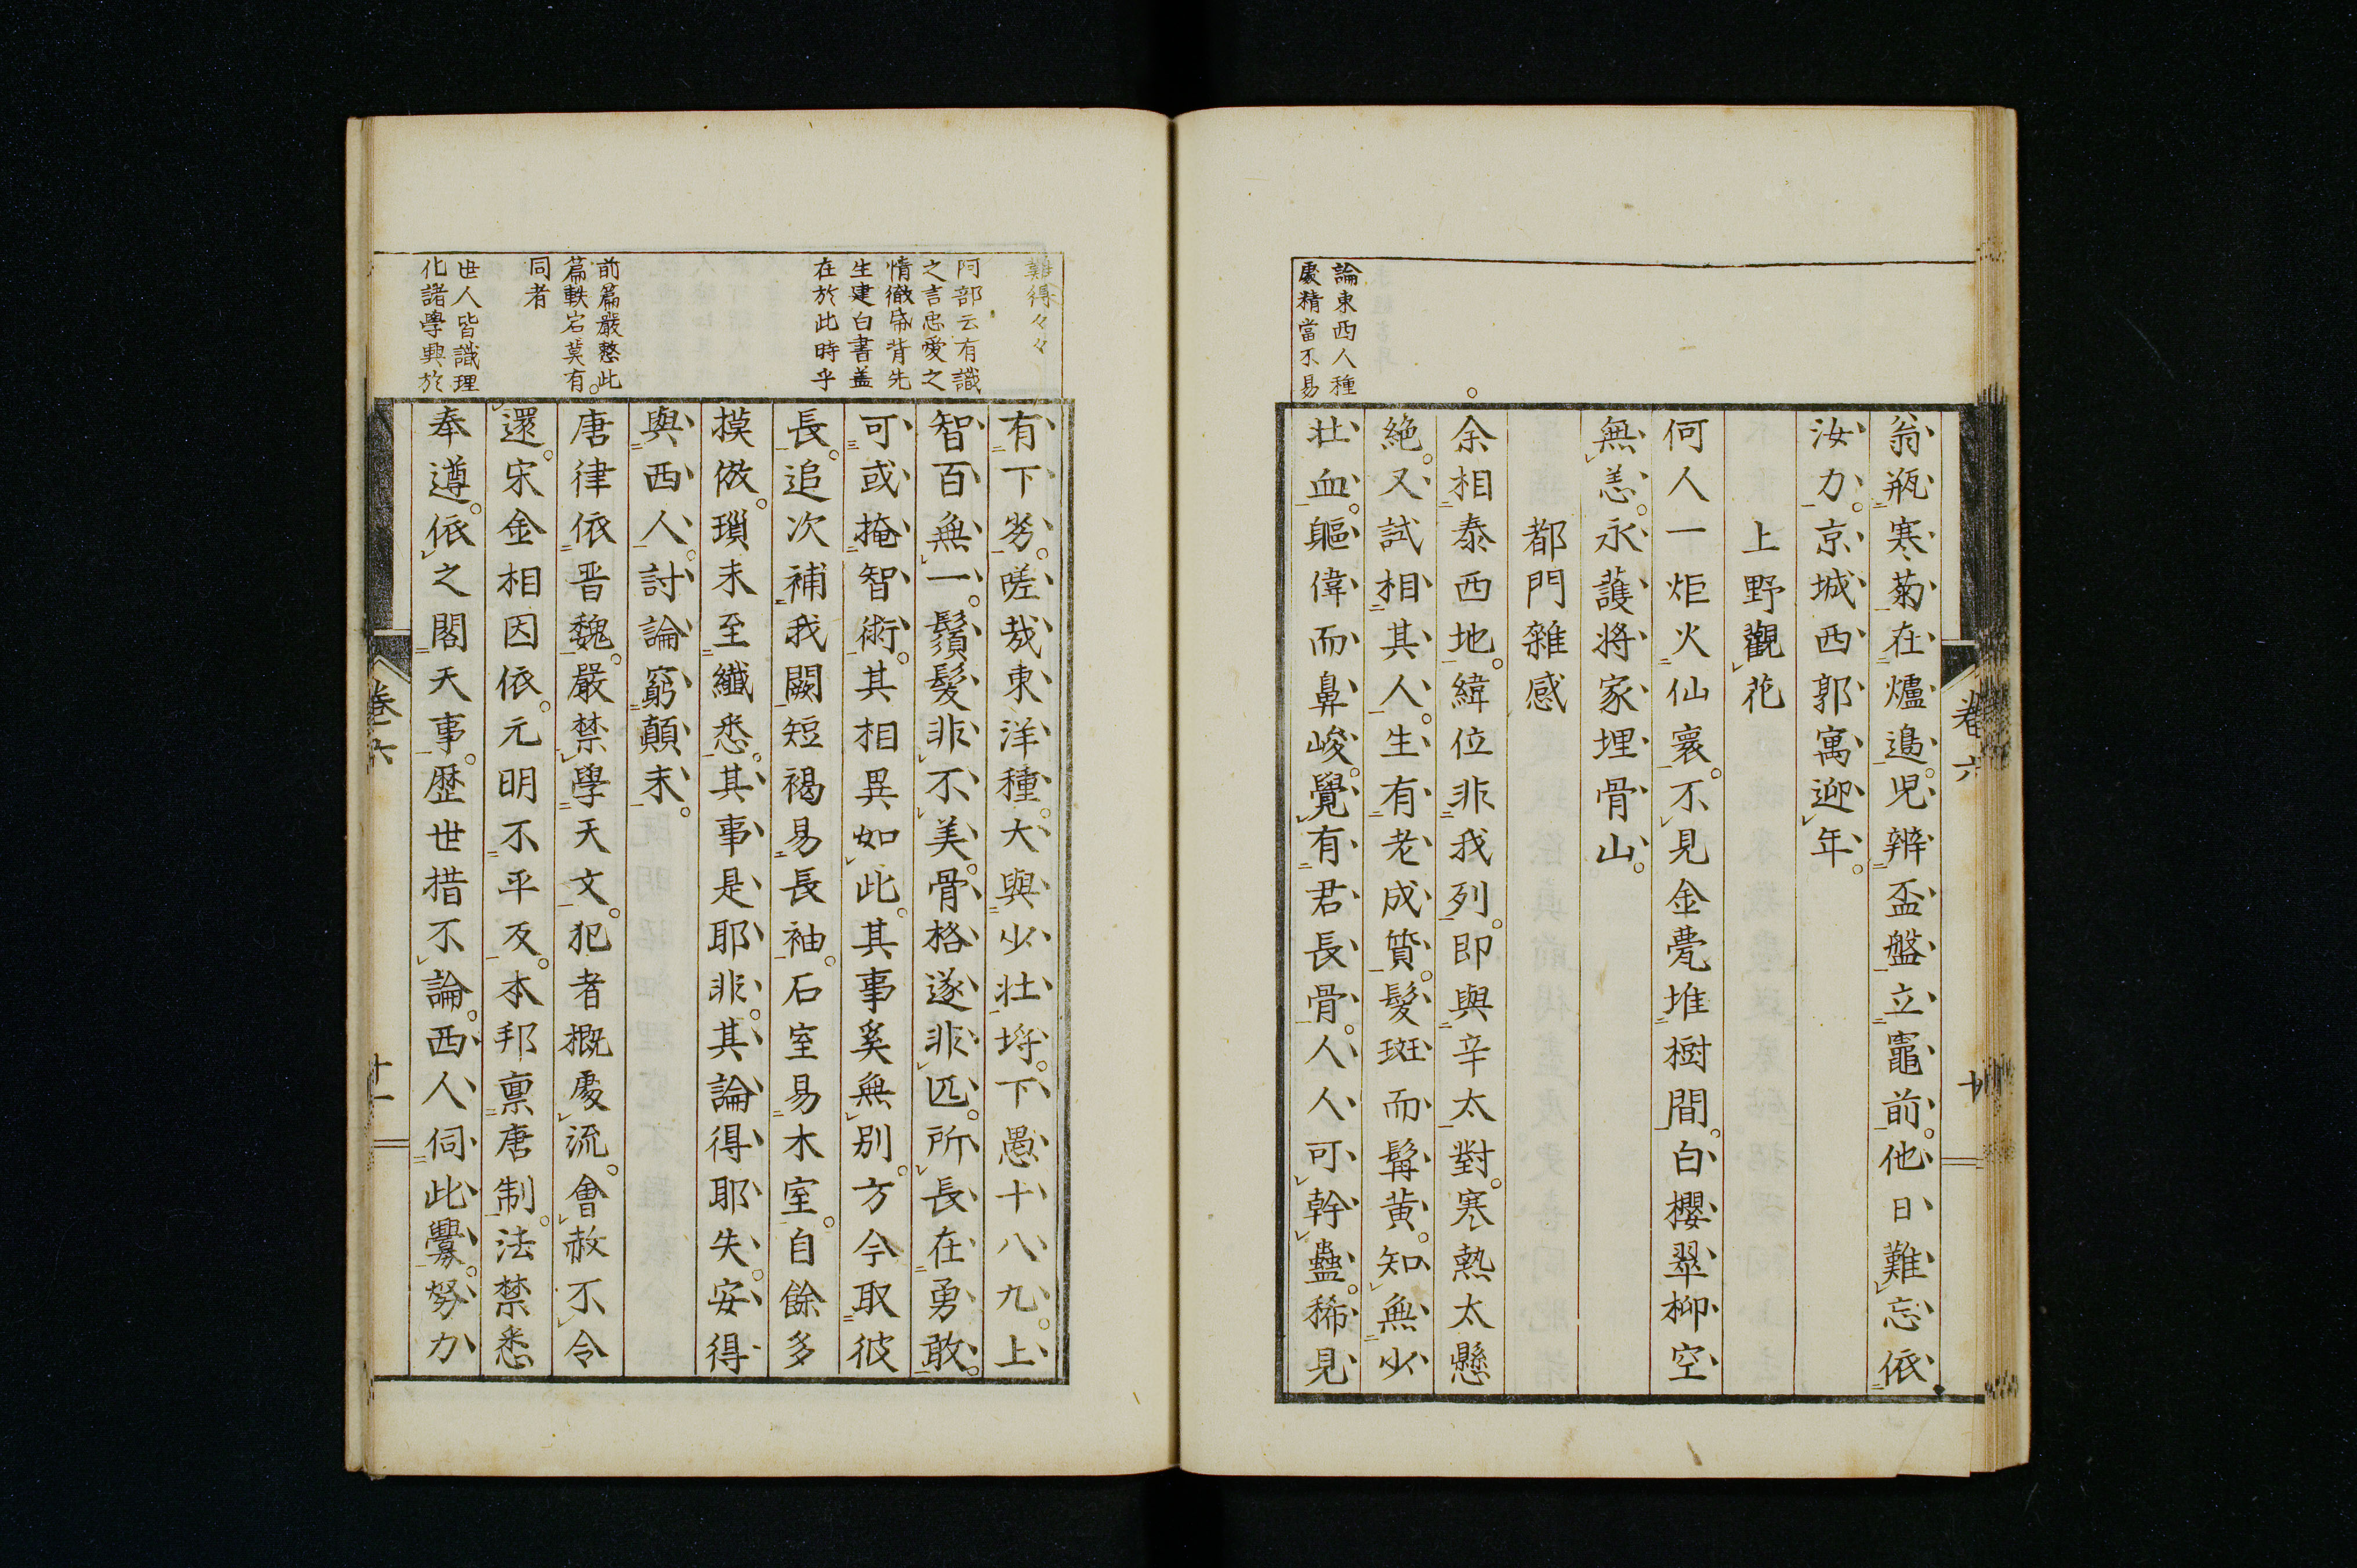 翁瓶寒菊在爐邉児辨盃盤立竈前他日難忘依
汝力京城西郭寓迎年
上野觀花
何人一炬火仙寰不見金甍堆樹間白櫻翠柳空
無恙永護將家埋骨山
都門雜感
余相泰西地緯位非我列即與辛太對寒熱太懸
絶又試相其人生有老成質髮斑而髯黄知無少
壮血軀偉而鼻峻覺有君長骨人人可幹蠱稀見
論東西人種
處精當不易
卷六
十
有下劣嗟哉東洋種大與少壮埒下愚十八九上
智百無一鬚髮非不美骨格遂非匹所長在勇敢
可或掩智術其相異如此其事奚無別方今取彼
長追次補我闕短褐易長袖石室易木室自餘多
摸倣瑣末至纖悉其事是耶非其論得耶失安得
與西人討論窮顛末
唐律依晋魏嚴禁學天文犯者概處流會赦不令
還宋金相因依元明不平反本邦禀唐制法禁悉
奉遵依之閣天事歴世措不論西人伺此釁努力
難得々々
阿部云有識
之言忠愛之
情徹帋背先
生建白書盖
在於此時乎
前篇嚴整此
篇軼宕莫有
同者
世人皆識理
化諸學興於
卷六
十一